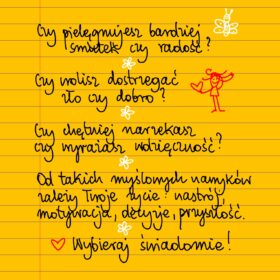 Czy pielęgnujesz bardziej
smutek czy radość?
Czy wolisz dostrzegać
zło czy dobro?
Czy chętniej narzekasz
czy wyrażasz wdzięczność?
Od takich myślowych nawyków
zależy Twoje życie: nastrój,
motywacja, decyzje, przyszłość.
Wybieraj świadomie!